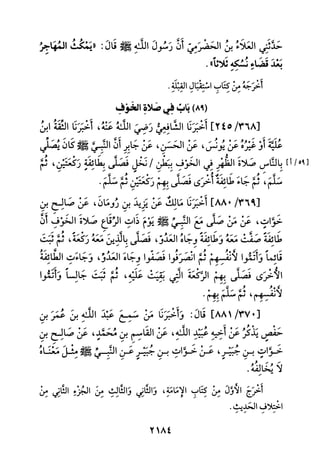 حَدَّثَنِي العَلَاءُ بنُ الحَضْرَمِيِّ أَنَّ رَسُولَ اللَّهِ ﷺ قَالَ: «يَمْكُثُ المُهَاجِرُ
بَعْدَ قَضَاءِ نُسُكِهِ ثَلاثاً».
أَخْرَجَهُ مِنْ كِتَابِ اسْتِقْبَالِ القِبْلَةِ.
(٨٩) بَابٌ فِي صَلاةِ الخَوْفِ
[٢٤٥/٣٦٨] أَخْبَرَنَا الشَّافِعِيُّ رَضِيَ اللَّهُ عَنْهُ، أَخْبَرَنَا الثِّقَةُ ابنُ
عُلَيَّةَ أَوْ غَيْرُهُ عَنْ يُونُسَ، عَنْ الحَسَنِ، عَنْ جَابِرٍ أَنَّ النَّبِيَّ ﷺ كَانَ يُصَلِّي
بِالنَّاسِ صَلاةَ الظُّهْرِ فِي الخَوْفِ بِبَطْنِ / نَخْلٍ فَصَلَّى بِطَائِفَةٍ رَكْعَتَيْنِ، ثُمَّ [٥٩/أ]
سَلَّمَ، ثُمَّ جَاءَ طَائِفَةٌ أُخْرَى فَصَلَّى بِهِمْ رَكْعَتَيْنِ ثُمَّ سَلَّمَ.
[٨٨٠/٣٦٩] أَخْبَرَنَا مَالِكٌ عَنْ يَزِيدَ بنِ رُومَانَ، عَنْ صَالِحِ بنِ
خَوَّاتٍ، عَنْ مَنْ صَلَّى مَعَ النَّبِيِّ ﷺ يَوْمَ ذَاتِ الرِّقَاعِ صَلاةَ الخَوْفِ أَنَّ
طَائِفَةً صَفَّتْ مَعَهُ وَطَائِفَةً وِجَاهَ العَدُوِّ، فَصَلَّى بِالَّذِينَ مَعَهُ رَكْعَةً، ثُمَّ ثَبَتَ
قَائِماً وَأَتَمُّوا لأَنْفُسِهِمْ ثُمَّ انْصَرَفُوا فَصَفُّوا وِجَاهَ العَدُوِّ، وَجَاءَتِ الطَّائِفَةُ
الأُخْرَى فَصَلَّى بِهِمُ الرَّكْعَةَ الَّتِي بَقِيَتْ عَلَيْهِ، ثُمَّ ثَبَتَ جَالِساً وَأَتَمُّوا
لأَنْفُسِهِمْ، ثُمَّ سَلَّمَ بِهِمْ.
[٨٨١/٣٧٠] قَالَ: وَأَخْبَرَنَا مَنْ سَمِعَ عَبْدَ اللَّهِ بنَ عُمَرَ بنِ
حَفْصٍ يَذْكُرُ عَنْ أَخِيهِ عُبَيْدِ اللَّهِ، عَنْ القَاسِمِ بنِ مُحَمَّدٍ، عَنْ صَالِحِ بنِ
خَوَّاتِ بنِ جُبَيْرٍ، عَنْ خَوَّاتِ بنِ جُبَيْرٍ عَنِ النَّبِيِّ ﷺ مِثْلَ مَعْنَاهُ
لَا يُخَالِفُهُ.
أَخْرَجَ الأَوَّلَ مِنْ كِتَابِ الإِمَامَةِ، وَالثَّانِي وَالثَّالِثَ مِنَ الجُزْءِ الثَّانِي مِنْ
اخْتِلافِ الحَدِيثِ.
٢١٨٤